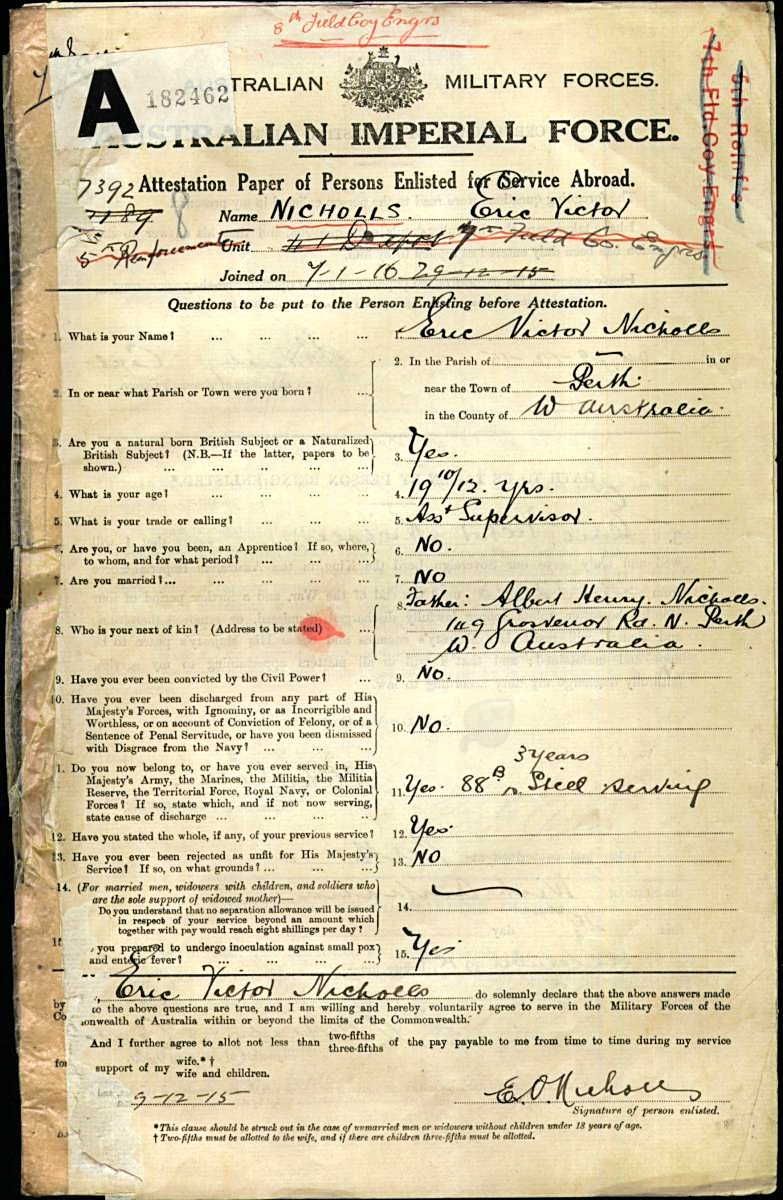 8th Field Coy Engrs
A 182462
TRALIAN MILITARY FORCES.
AUSTRALIAN IMPERIAL FORCE.
6th Reinf's
7th Fld Coy Engrs
7392 Attestation Paper of Persons Enlisted for Service Abroad.
1189 8 Name NICHOLLS. Eric Victor
5th Reinforcement Unit Depot 7th Field Co. Engrs
Joined on 7-1-16 29-12-15
Questions to be put to the Person Enlisting before Attestation.
1. What is your Name? ... ... ... ... 1. Eric Victor Nicholls
2. In or near what Parish or Town were you born? ... 2. In the Parish of — in or
near the Town of Perth.
in the County of W Australia.
3. Are you a natural born British Subject or a Naturalized
British Subject? (N.B.—If the latter, papers to be
shown.) ... ... ... ... ... 3. Yes.
4. What is your age? ... ... ... ... 4. 19 10/12. yrs.
5. What is your trade or calling? ... ... ... 5. Asst Supervisor.
6. Are you, or have you been, an Apprentice? If so, where,
to whom, and for what period? ... ... ... 6. No.
7. Are you married?... ... ... ... ... 7. No
8. Who is your next of kin? (Address to be stated) ... 8. Father: Albert Henry. Nicholls.
149 Grosvenor Rd. N. Perth
W. Australia.
9. Have you ever been convicted by the Civil Power? ... 9. No.
0. Have you ever been discharged from any part of His
Majesty's Forces, with Ignominy, or as Incorrigible and
Worthless, or on account of Conviction of Felony, or of a
Sentence of Penal Servitude, or have you been dismissed
with Disgrace from the Navy? ... ... ... 10. No.
1. Do you now belong to, or have you ever served in, His
Majesty's Army, the Marines, the Militia, the Militia
Reserve, the Territorial Force, Royal Navy, or Colonial
Forces? If so, state which, and if not now serving,
state cause of discharge ... ... ... ... 11. Yes. 88th Bn 3 years Still serving
12. Have you stated the whole, if any, of your previous service? 12. Yes.
13. Have you ever been rejected as unfit for His Majesty's
Service? If so, on what grounds? ... ... ... 13. No
14. (For married men, widowers with children, and soldiers who
are the sole support of widowed mother)—
Do you understand that no separation allowance will be issued
in respect of your service beyond an amount which
together with pay would reach eight shillings per day? 14. —
you prepared to undergo inoculation against small pox
and enteric fever? ... ... ... ... ... 15. Yes
Eric Victor Nicholls do solemnly declare that the above answers made
by to the above questions are true, and I am willing and hereby voluntarily agree to serve in the Military Forces of the
Co onwealth of Australia within or beyond the limits of the Commonwealth.
And I further agree to allot not less than two-fifths three-fifths of the pay payable to me from time to time during my service
for support of my wife.* † wife and children.
9-12-15 E. V. Nicholls
Signature of person enlisted.
* This clause should be struck out in the case of unmarried men or widowers without children under 18 years of age.
† Two-fifths must be allotted to the wife, and if there are children three-fifths must be allotted.